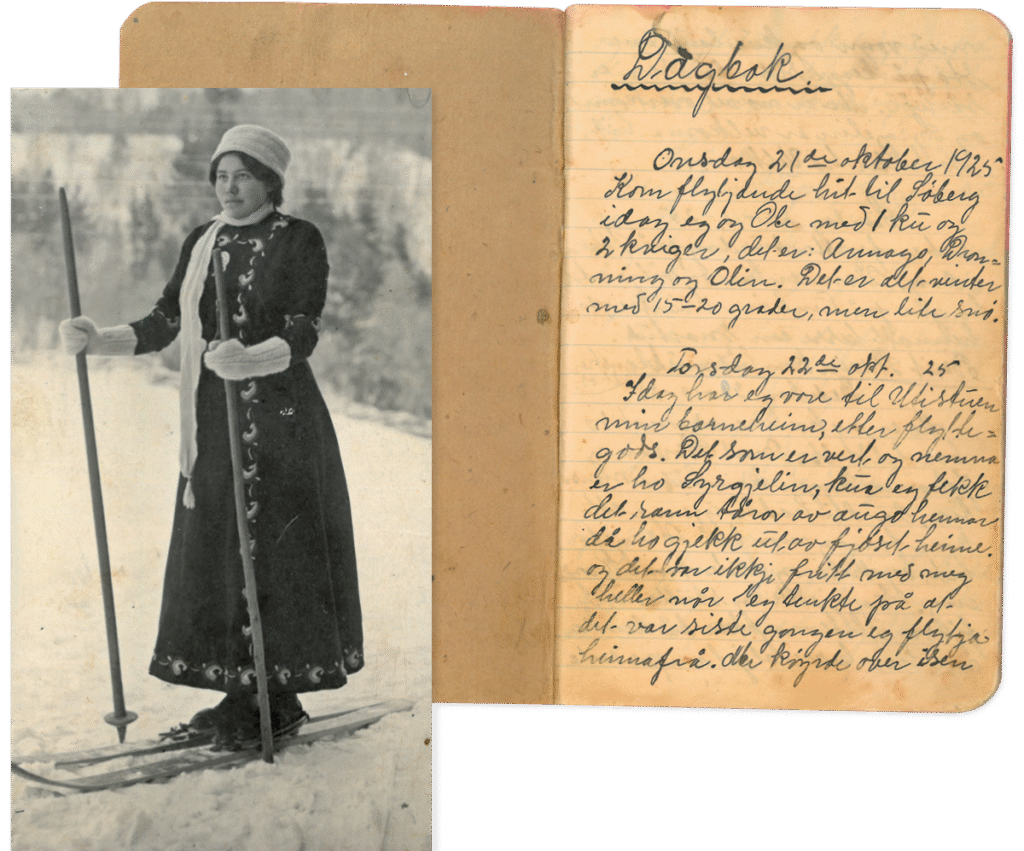 Dagbok.
Onsdag 21de oktober 1925
Kom flytjande hit til Søberg
idag eg og Ole med 1 ku og
2 kviger, det er: Annago, Dron=
ning og Olin. Det er alt vinter
med 15-20 grader, men lite snø.
Torsdag 22de okt. 25
Idag har eg vore til Utistuen
min barneheim, etter flytte=
gods. Det som er vert og nemna
er ho Syrgjelin, kua eg fekk
det rann tåror av augo hennar
då ho gjekk ut av fjøset heime.
og det var ikkji fritt med meg
heller når eg tenkte på at
det var siste gongen eg flytja
heimafrå. Me køyrde over isen